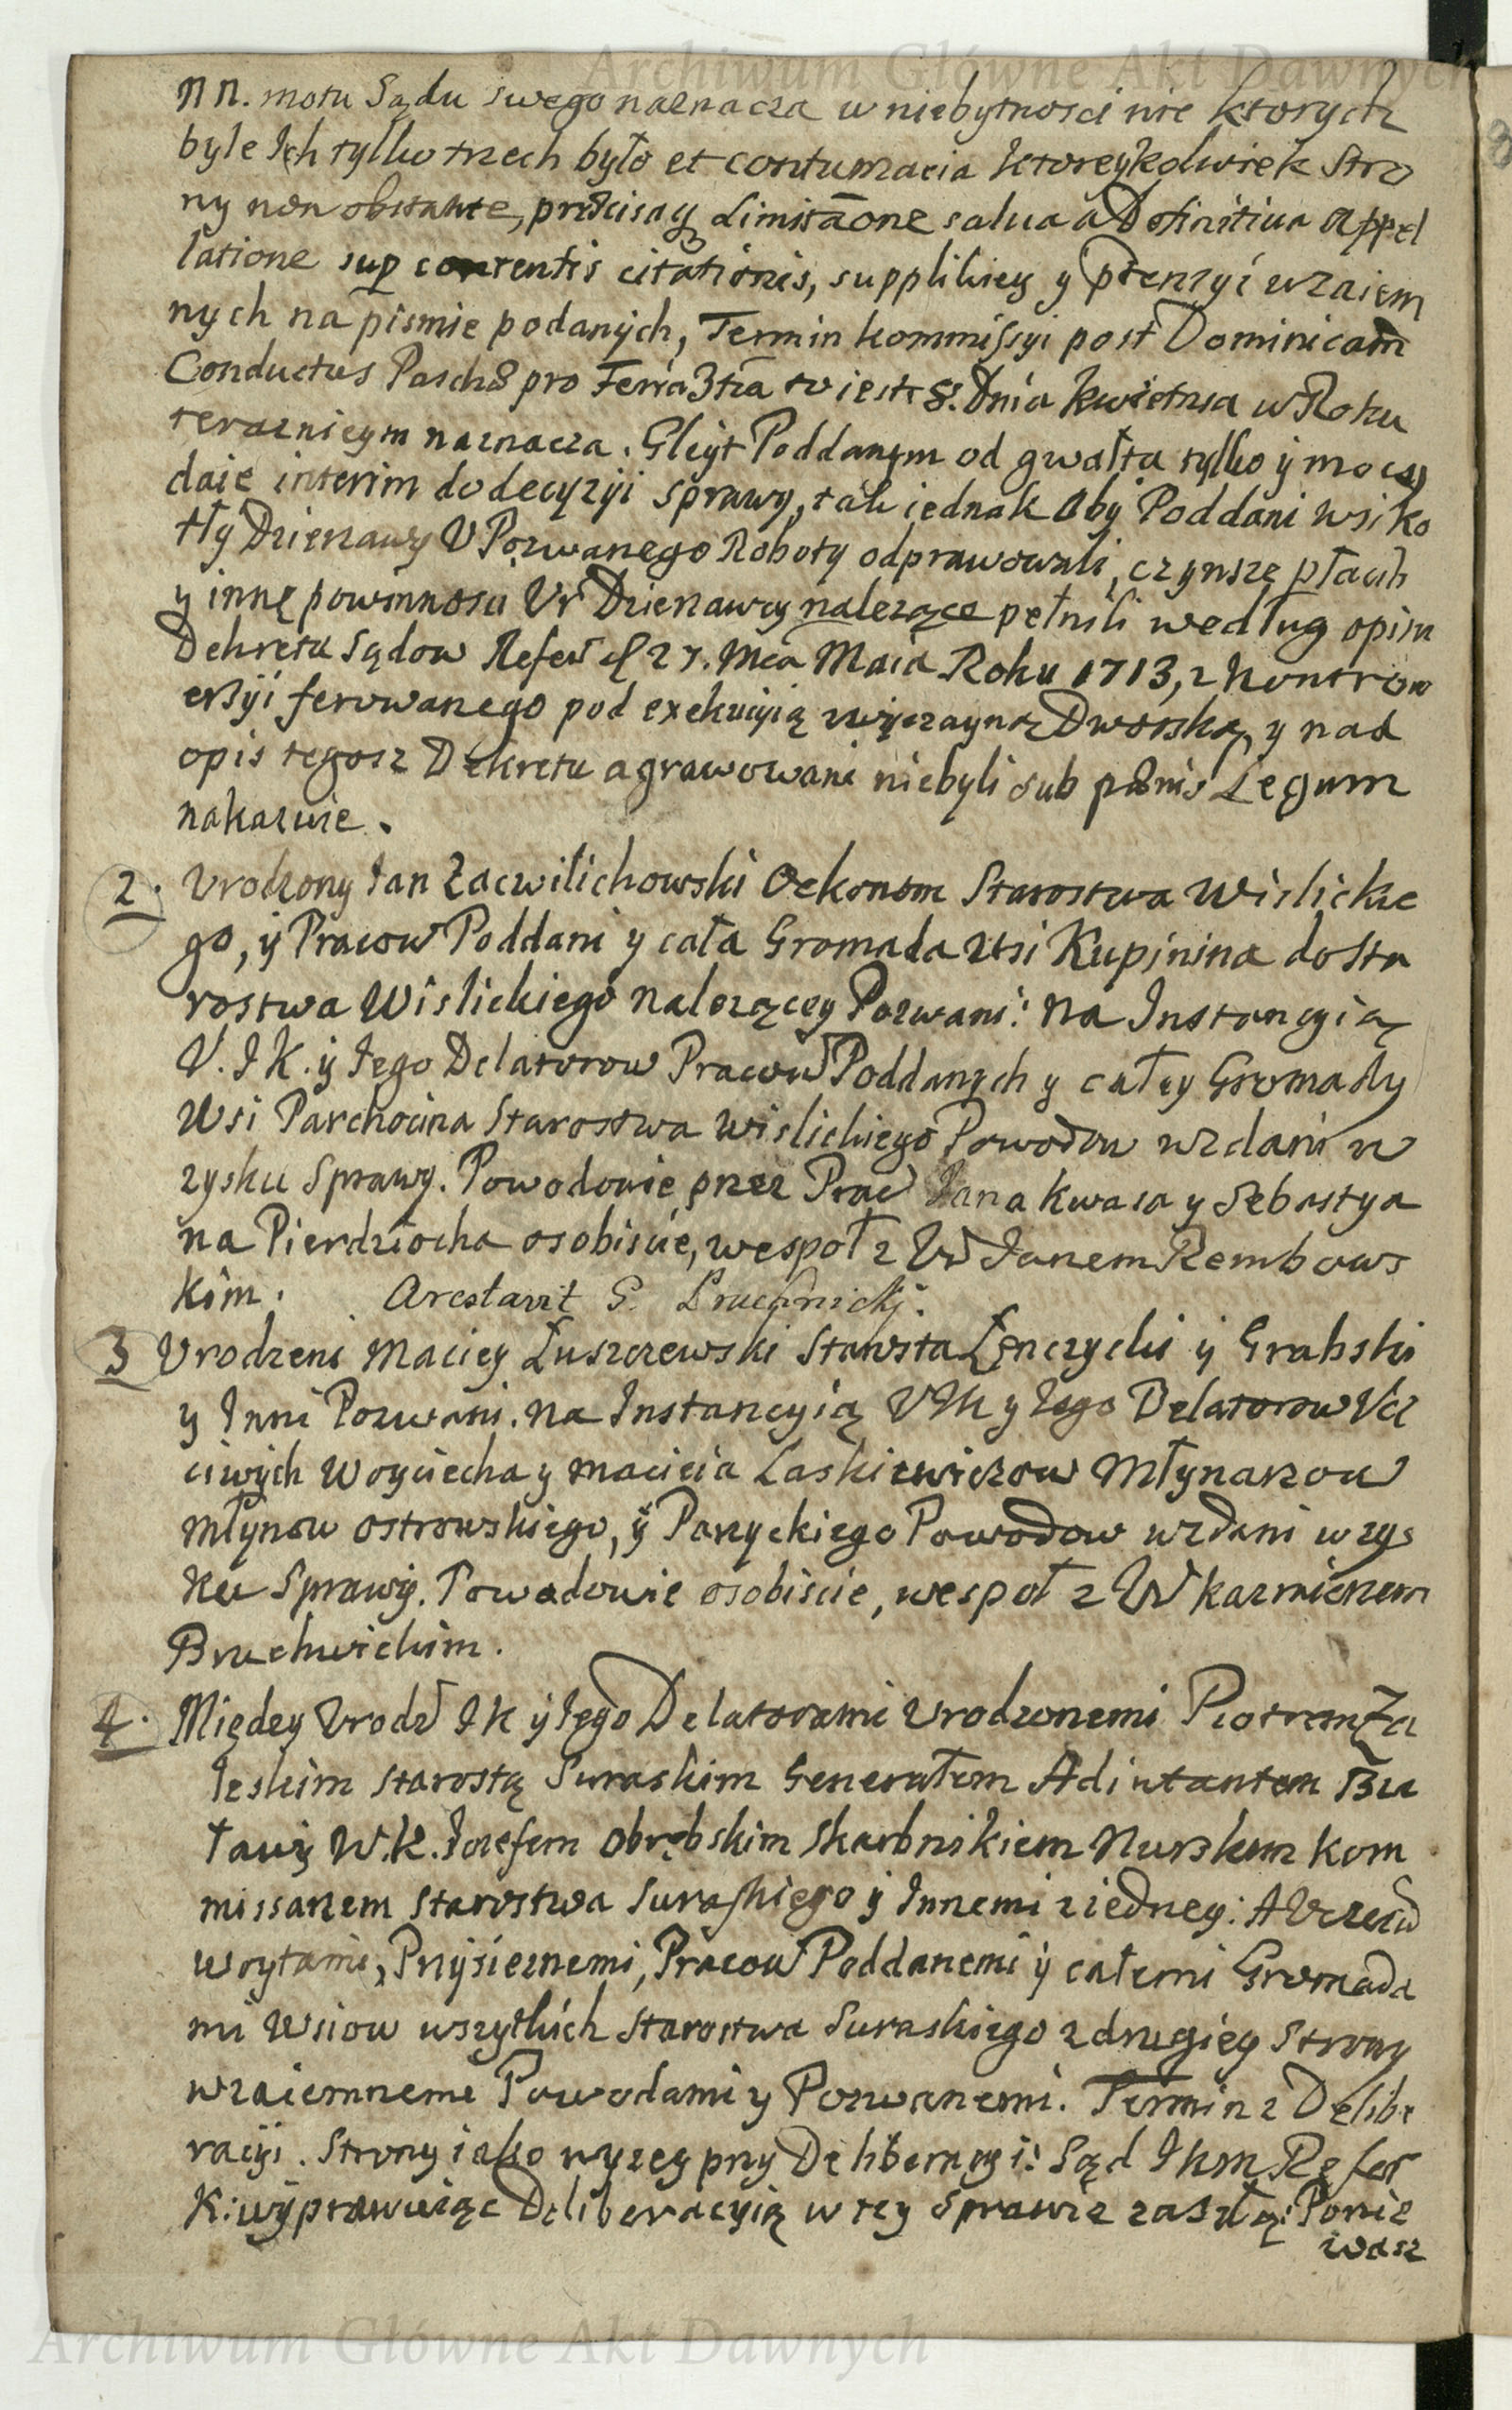 Archiwum Główne Akt Dawnych
nn. motu Sądu swego naznacza w niebytnosci nie ktorych
byle Ich tylko trzech było et contumacia ktoreykolwiek Stro
ny non obstante, praecisaq limitaone salua a Definitiua appel
latione sup contentis citationis, supplikiey y ptensyi wzaiem
nych na pismie podanych, Termin kommissyi post Dominicam
Conductus Paschae pro Feria 3tia to iest 8. Dnia kwietnia w Roku
teraznieyszym naznacza. Gleyt Poddanym od gwałtu tylko y mocy
daie interim do decyzyi sprawy, tak iednak aby Poddani wsi ko
tły Dzierzawy V Pozwanego Roboty odprawowali, czynsze płacili
y inne powinnosci Vr Dzierzawcy nalezące pełnili według opisu
Dekretu Sądow Refer 27. Mca Maia Roku 1713, z kontrow
ersyi ferowanego pod exekucyią zwyczayną Dworską, y nad
opis tegosz Dekretu agrawowani niebyli sub paenis Legum
nakazuie.
2. Vrodzony Ian Zacwilichowski Oekonom Starostwa Wislickie
go, y Pracow Poddani y cała Gromada Wsi Kupinina do Sta
rostwa Wislickiego nalezącey Pozwani: na Instancyią
V. I K. y Iego Delatorow Pracow Poddanych y całey Gromady
Wsi Parchocina Starostwa Wislickiego Powodow wzdani w
zysku Sprawy. Powodowie przez Prac Iana Kwasa y Sebastya
na Pierdziocha osobiscie, wespoł z Vr Ianem Rembows
kim. Arestavit G. Pruchnicki.
3 Vrodzeni Maciey Łuszczewski Starosta Łęnczycki y Grabski
y Inni Pozwani. na Instancyią VIK y Iego Delatorow Vcz
ciwych Woyciecha y Macieia Laskiewiczow Młynarzow
Młynow ostrowskiego, y Parzyckiego Powodow wzdani w zys
ku Sprawy. Powodowie osobiscie, wespoł z Vr Kazmierzem
Bruchwickim.
4. Między Vrodz I K y Iego Delatorami Vrodzonemi Piotrem Za
leskim Starostą Suraskim Generałem Adiutantem Bu
ławy W.K. Iozefem Obrębskim Skarbnikiem Nurskim kom
missarzem Starostwa Suraskiego y Innemi z iedney: A Vczciw
woytami, Przysieznemi, Pracow Poddanemi y całemi Gromada
mi Wsiow wszytkich Starostwa Suraskiego z drugiey Strony
wzaiemneme Powodami y Pozwanemi. Termin z Delibe
racyi. Strony iako wyzey przy Deliberacyi: Sąd Ikm Refer
K: wyprawuiąc Deliberacyią w tey Sprawie zaszłą: Ponie
wasz
Archiwum Główne Akt Dawnych